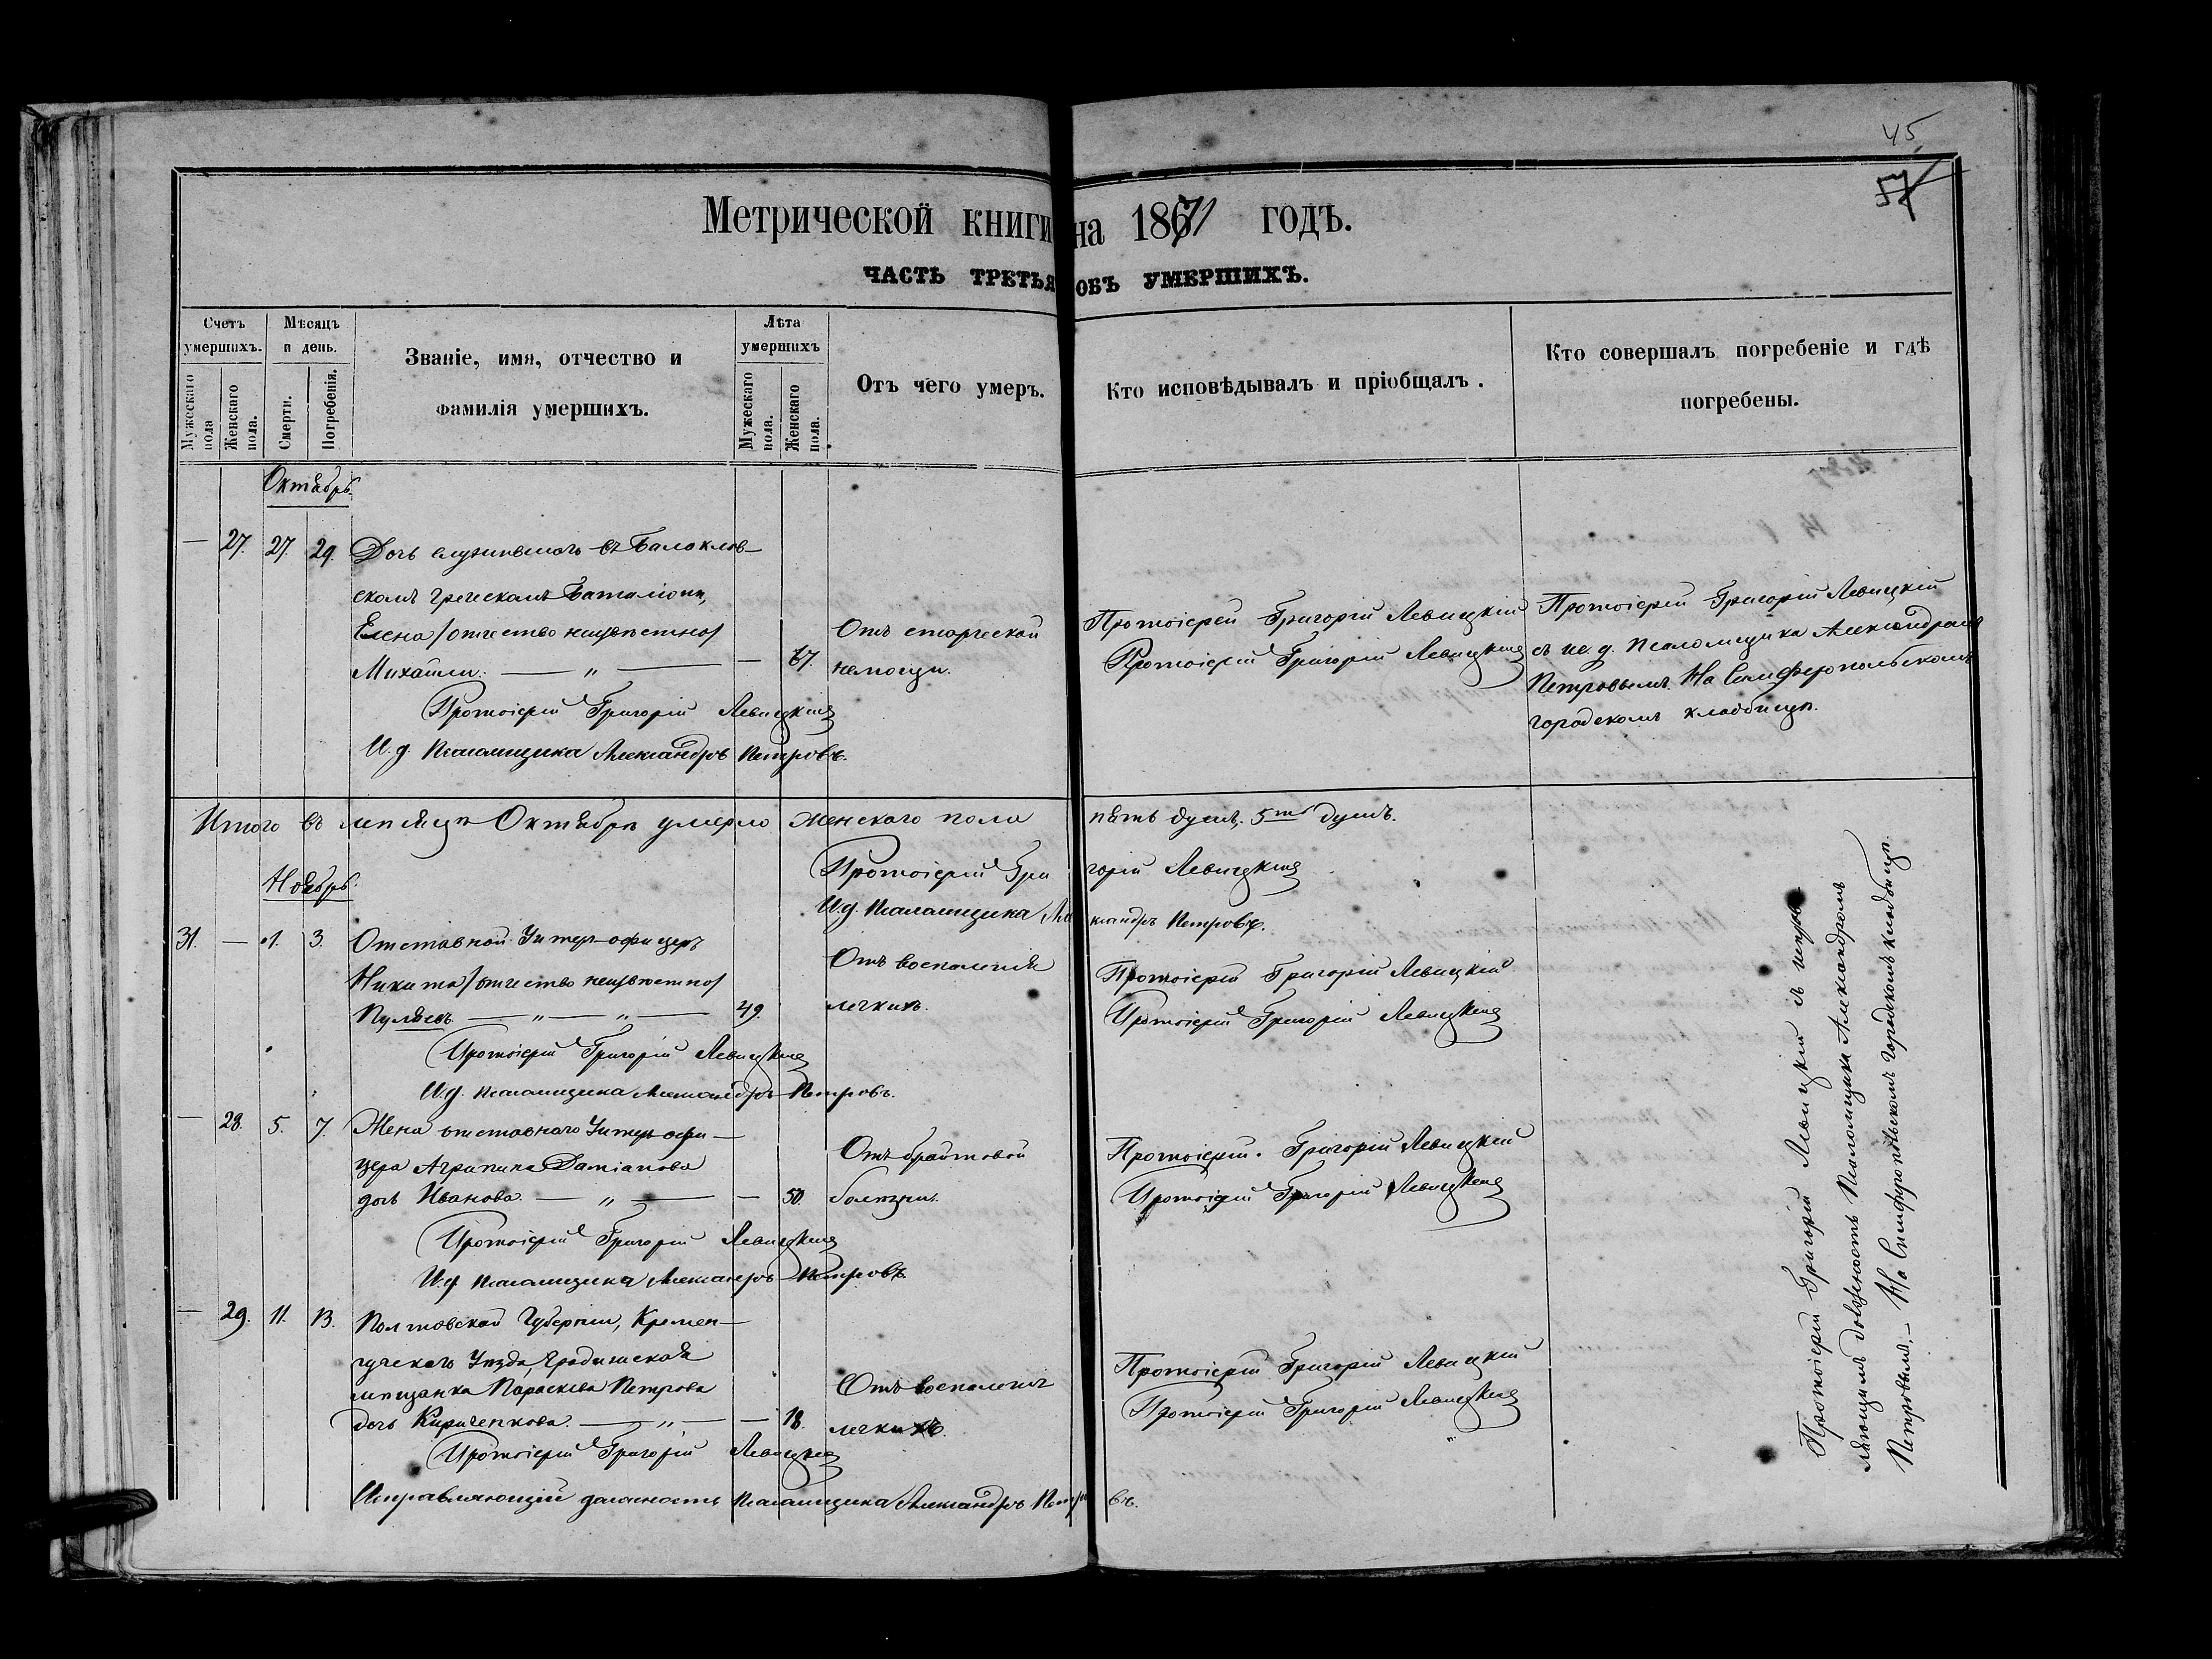 45.
57
Метрической книги на 1871 годъ.
ЧАСТЬ ТРЕТЬЯ ОБЪ УМЕРШИХЪ.
Счетъ умершихъ.
Мужескаго пола
Женскаго пола.
Мѣсяцъ и день.
Смерти.
Погребенія.
Званіе, имя, отчество и
фамилія умершихъ.
Лѣта умершихъ
Мужескаго пола.
Женскаго пола.
Отъ чего умеръ.
Кто исповѣдывалъ и пріобщалъ.
Кто совершалъ погребеніе и гдѣ
погребены.
Октябрь.
— 27. 27. 29. Дочь служившаго въ Балаклав-
скомъ Греческомъ Баталіонѣ,
Елена /отчество неизвѣстно/
Михайли. — „ — — 67.
Отъ старческой
немощи.
Протоіерей Григорій Левицкій
Протоіерей Григорій Левицкій
Протоіерей Григорій Левицкій
съ и. д. Псаломщика Александромъ
Петровымъ. На Симферопольскомъ
городскомъ кладбищѣ.
Протоіерей Григорій Левицкій
И. д. Псаломщика Александръ Петровъ.
Итого въ мѣсяцѣ Октябрѣ умерло женского пола пять душъ, 5ть душъ.
Протоіерей Григорій Левицкій
И. д. Псаломщика Александръ Петровъ.
Ноябрь.
31. — 1. 3. Отставной Унтеръ-офицеръ
Никита /отчество неизвѣстно/
— „ — „ — 49.
Отъ воспаленія
легкихъ.
Протоіерей Григорій Левицкій
Протоіерей Григорій Левицкій
Протоіерей Григорій Левицкій
И. д. Псаломщика Александръ Петровъ.
— 28. 5. 7. Жена отставнаго Унтеръ-офи-
цера Агрипина Даміанова
дочь Иванова. — „ — — 50.
болѣзни.
Протоіерей Григорій Левицкій
Протоіерей Григорій Левицкій
Протоіерей Григорій Левицкій
И. д. Псаломщика Александръ Петровъ.
— 29. 11. 13. Полтавской Губерніи, Кремен-
чугскаго Уѣзда, Градижская
мѣщанка Параскева Петрова
дочь Кириченкова. — „ — — 18.
Отъ воспаленія
легкихъ.
Протоіерей Григорій Левицкій
Протоіерей Григорій Левицкій
Протоіерей Григорій Левицкій
Исправляющій должность Псаломщика Александръ Петровъ.
Протоіерей Григорій Левицкій съ исправ-
ляющимъ должность Псаломщика Александромъ
Петровымъ. — На Симферопольскомъ городскомъ кладбищѣ.